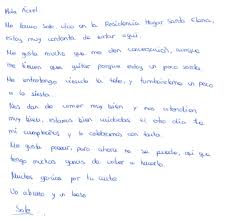 Hola
Me llamo Sole, vivo en la Residencia Hogar Santa Elena,
estoy muy contenta de estar aquí.
Me gusta mucho que me den conversación, aunque
me tienen que gritar porque estoy un poco sorda.
Me entretengo viendo la tele, y tumbándome un poco
a la siesta.
Nos dan de comer muy bien y nos atienden
muy bien, estamos bien cuidados el otro día fue
mi cumpleaños y lo celebramos con tarta.
Me gusta pasear pero ahora no se puede, así que
tengo muchas ganas de volver a hacerlo.
Muchas gracias por tu carta
Un abrazo y un beso
Sole